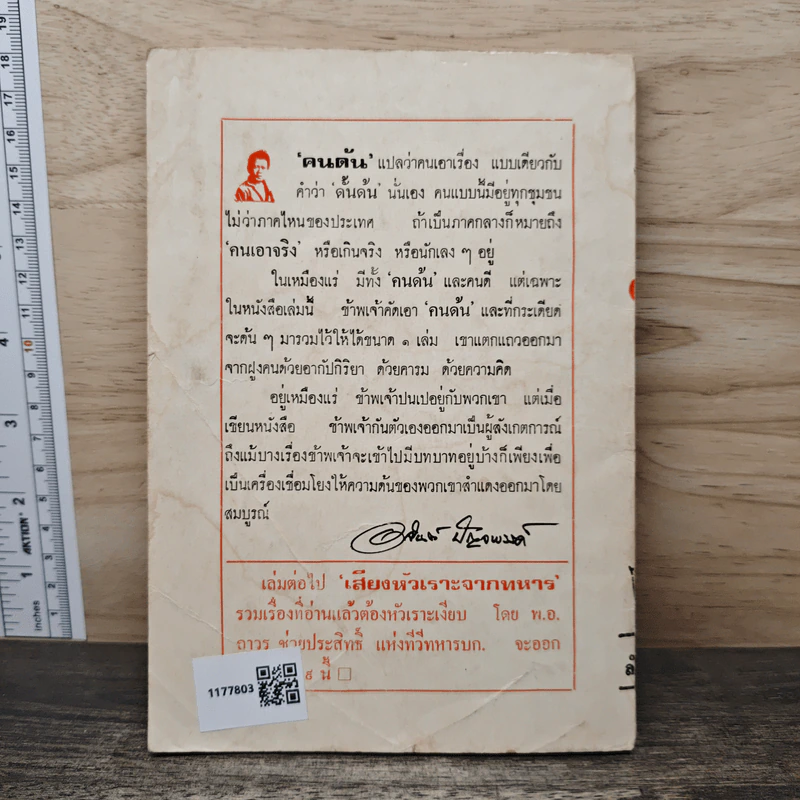 'คนดัน' แปลว่าคนเอาเรื่อง แบบเดียวกับ
คำว่า 'ดั้นด้น' นั่นเอง คนแบบนี้มีอยู่ทุกชุมชน
ไม่ว่าภาคไหนของประเทศ ถ้าเป็นภาคกลางก็หมายถึง
'คนเอาจริง' หรือเกินจริง หรือนักเลง ๆ อยู่
ในเหมืองแร่ มีทั้ง 'คนดัน' และคนดี แต่เฉพาะ
ในหนังสือเล่มนี้ ข้าพเจ้าคัดเอา 'คนดัน' และที่กระเดียด
จะดัน ๆ มารวมไว้ให้ได้ขนาด ๑ เล่ม เขาแตกแถวออกมา
จากฝูงคนด้วยอากัปกิริยา ด้วยคารม ด้วยความคิด
อยู่เหมืองแร่ ข้าพเจ้าปนเปอยู่กับพวกเขา แต่เมื่อ
เขียนหนังสือ ข้าพเจ้ากันตัวเองออกมาเป็นผู้สังเกตการณ์
ถึงแม้บางเรื่องข้าพเจ้าจะเข้าไปมีบทบาทอยู่บ้างก็เพียงเพื่อ
เป็นเครื่องเชื่อมโยงให้ความดันของพวกเขาสำแดงออกมาโดย
สมบูรณ์
อาจินต์ ปัญจพรรค์
เล่มต่อไป 'เสียงหัวเราะจากทหาร'
รวมเรื่องที่อ่านแล้วต้องหัวเราะเงียบ โดย พ.อ.
ถาวร ช่วยประสิทธิ์ แห่งทีวีทหารบก. จะออก
นี้ □
1177803
inches
AKTION
1
2
3
4
17
18
19